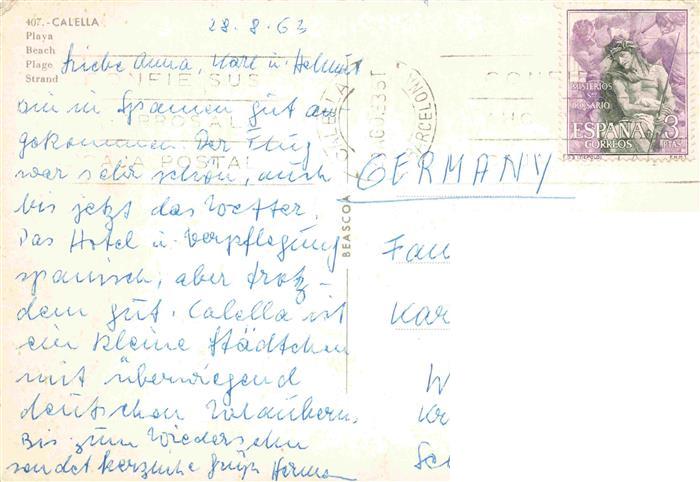 407.- CALELLA
Playa
Beach
Plage
Strand
28.8.63
Liebe Anna, Karl u. Helmut
bin in Spanien gut an
gekommen. Der Flug
war sehr schön, auch
bis jetzt das Wetter.
Das Hotel u. Verpflegung
spanisch, aber trotz-
dem gut. Calella ist
ein kleine Städtchen
mit überwiegend
deutschen Urlaubern.
Bis zum Wiedersehn
sendet herzliche Grüße Herman
BEASCOA
CALELLA
BARCELONA
MISTERIOS
DEL STO.
ROSARIO
ESPAÑA 3
CORREOS PTAS
GERMANY
Fam
Kar
W
Kr